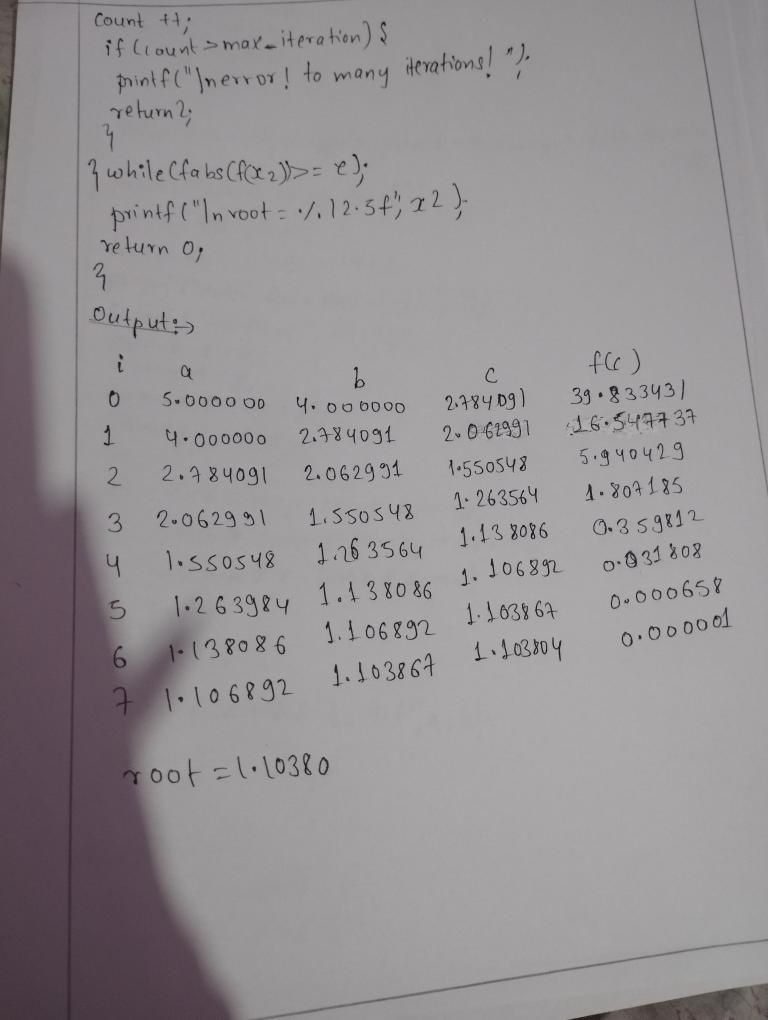 count ++;
if (count > max_iteration) {
printf("\n error! to many iterations! ");
return 2;
}
} while (fabs(f(x2)) >= e);
printf("\n root = %12.5f", x2);
return 0;
}
Output:->
i a b c f(c)
0 5.000000 4.000000 2.784091 39.833431
1 4.000000 2.784091 2.062991 16.547737
2 2.784091 2.062991 1.550548 5.940429
3 2.062991 1.550548 1.263564 1.807185
4 1.550548 1.263564 1.138086 0.359812
5 1.263984 1.138086 1.106892 0.031808
6 1.138086 1.106892 1.103867 0.000658
7 1.106892 1.103867 1.103804 0.000001
root = 1.10380